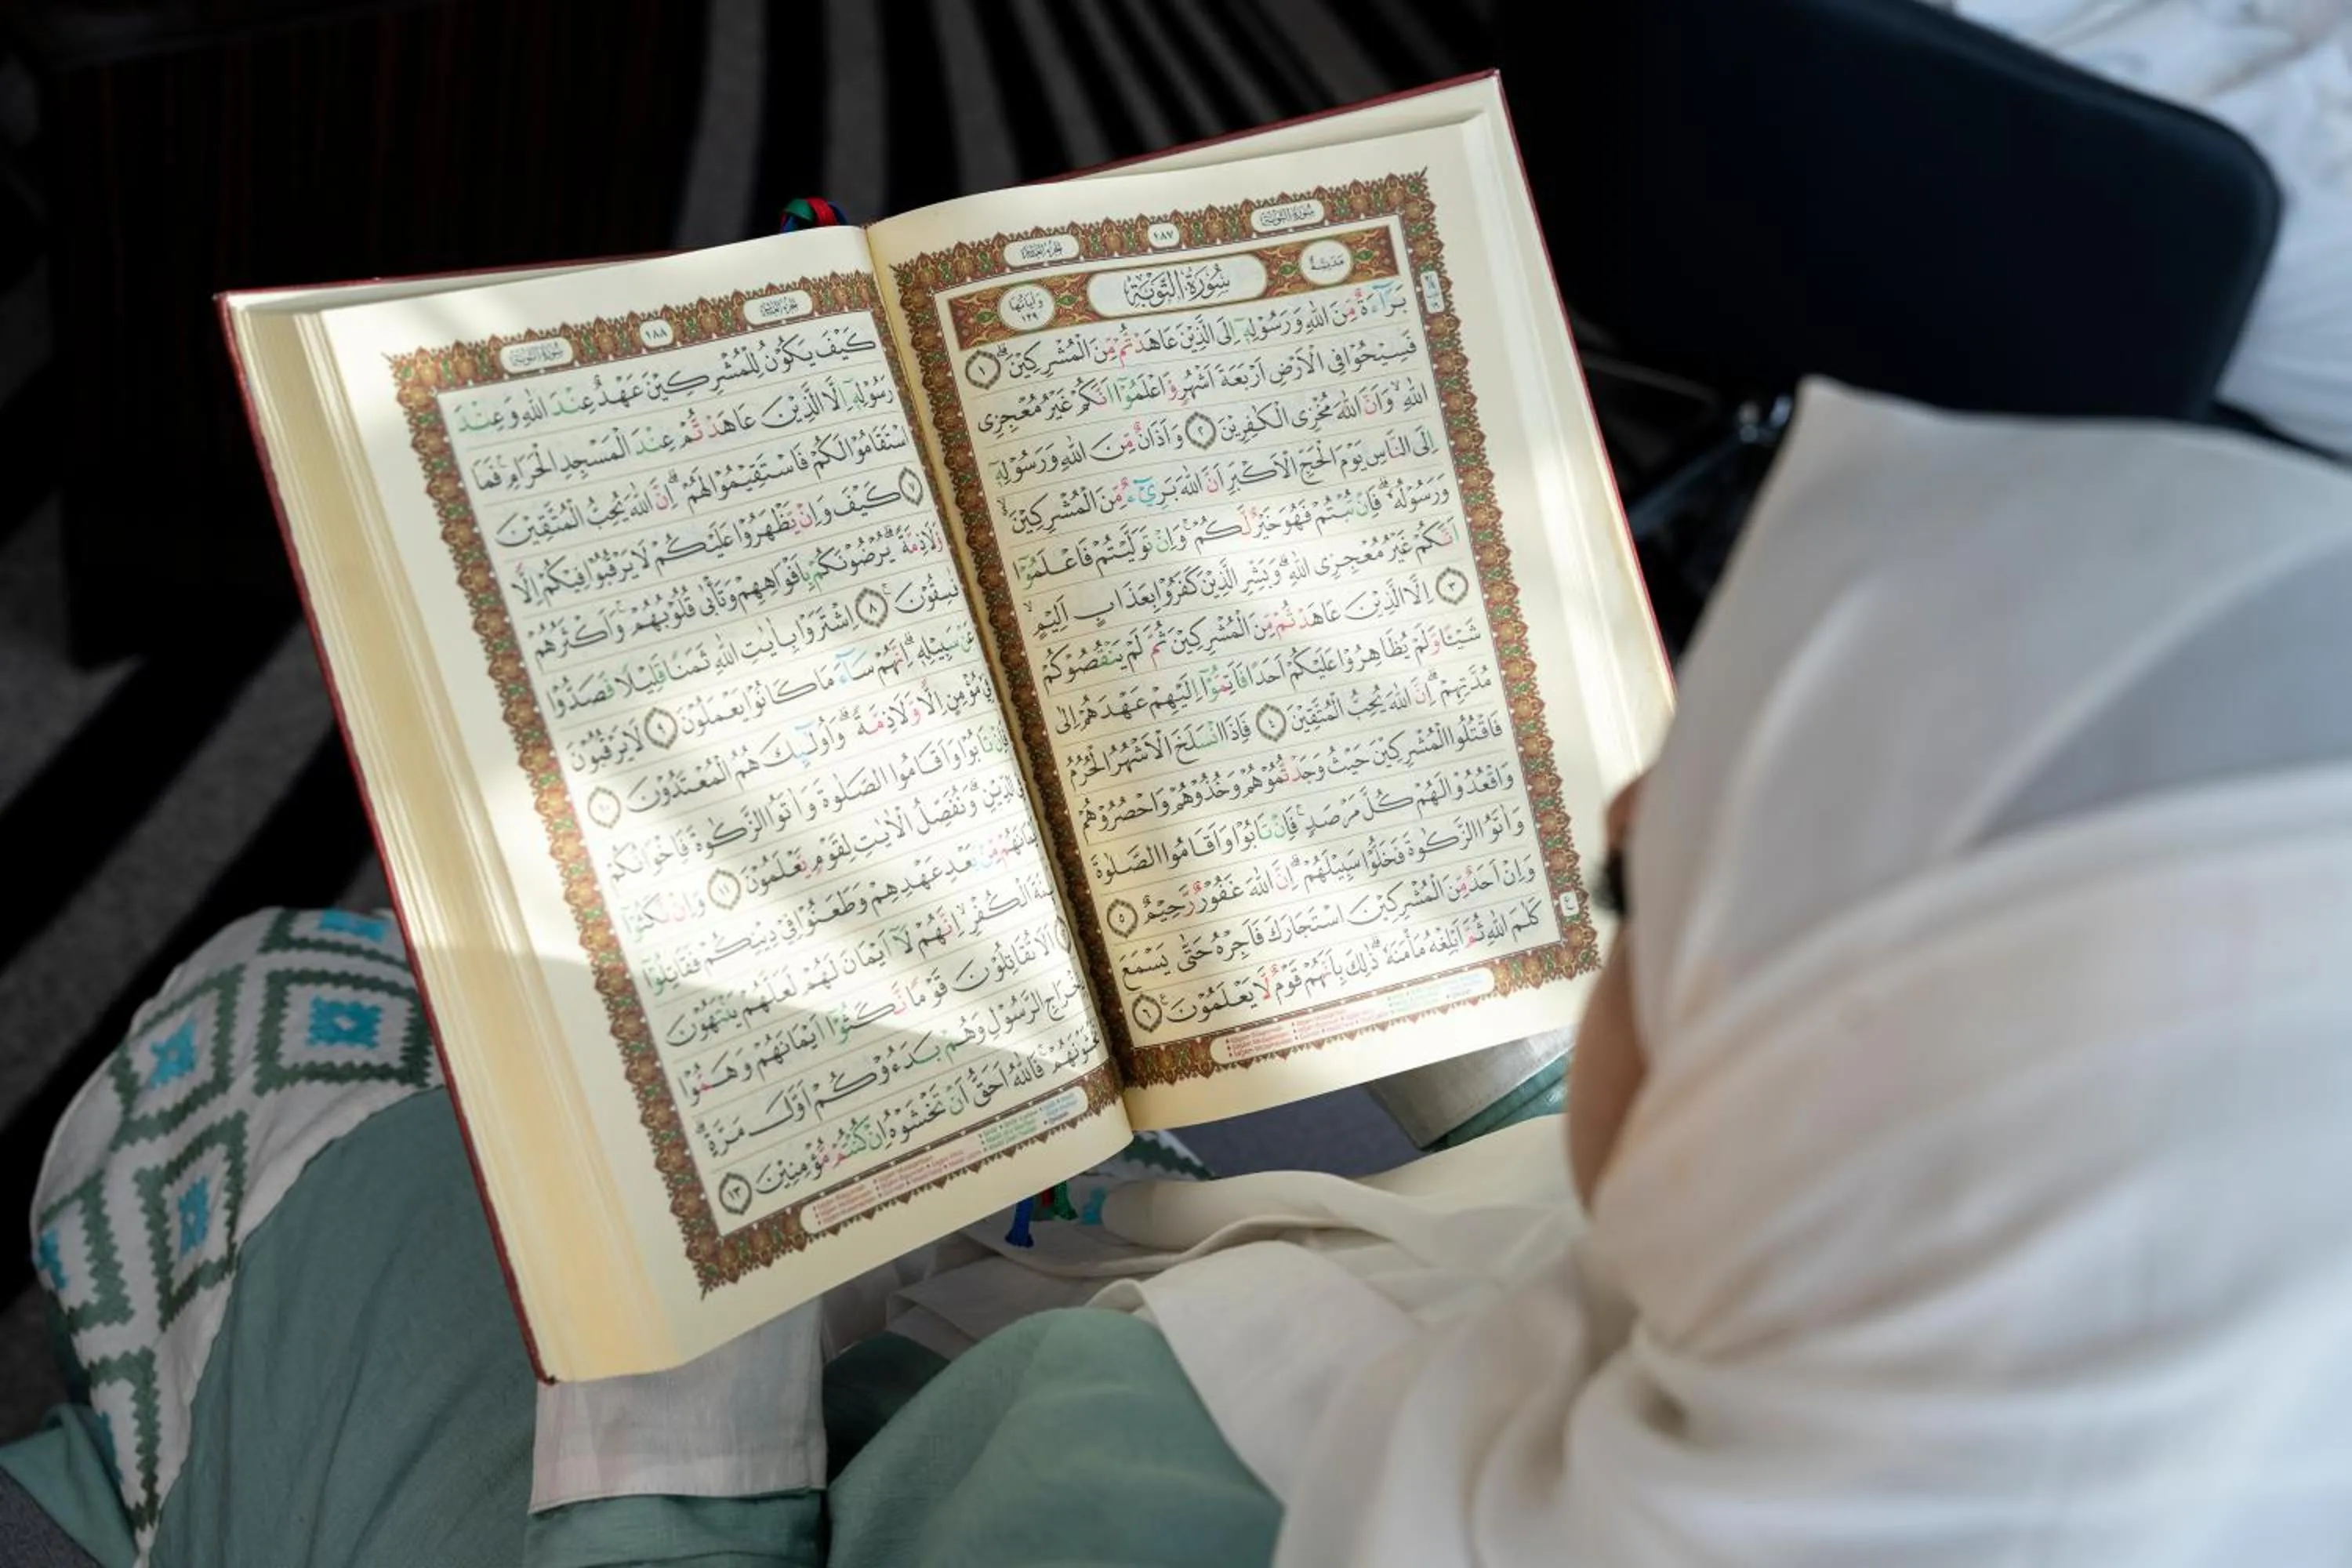 سُورَةُ التَّوْبَةِ ١٨٧ الجزء العاشر
مَدَنِيَّةٌ سُوْرَةُ التَّوْبَةِ وَاٰيَاتُهَا ١٢٩
بَرَاۤءَةٌ مِّنَ اللّٰهِ وَرَسُوْلِهٖٓ اِلَى الَّذِيْنَ عَاهَدْتُّمْ مِّنَ الْمُشْرِكِيْنَۗ ١
فَسِيْحُوْا فِى الْاَرْضِ اَرْبَعَةَ اَشْهُرٍ وَّاعْلَمُوْٓا اَنَّكُمْ غَيْرُ مُعْجِزِى
اللّٰهِ ۙوَاَنَّ اللّٰهَ مُخْزِى الْكٰفِرِيْنَ ٢ وَاَذَانٌ مِّنَ اللّٰهِ وَرَسُوْلِهٖٓ
اِلَى النَّاسِ يَوْمَ الْحَجِّ الْاَكْبَرِ اَنَّ اللّٰهَ بَرِيْۤءٌ مِّنَ الْمُشْرِكِيْنَ ۙ
وَرَسُوْلُهٗ ۗفَاِنْ تُبْتُمْ فَهُوَ خَيْرٌ لَّكُمْۚ وَاِنْ تَوَلَّيْتُمْ فَاعْلَمُوْٓا
اَنَّكُمْ غَيْرُ مُعْجِزِى اللّٰهِ ۗوَبَشِّرِ الَّذِيْنَ كَفَرُوْا بِعَذَابٍ اَلِيْمٍۙ
٣ اِلَّا الَّذِيْنَ عَاهَدْتُّمْ مِّنَ الْمُشْرِكِيْنَ ثُمَّ لَمْ يَنْقُصُوْكُمْ
شَيْـًٔا وَّلَمْ يُظَاهِرُوْا عَلَيْكُمْ اَحَدًا فَاَتِمُّوْٓا اِلَيْهِمْ عَهْدَهُمْ اِلٰى
مُدَّتِهِمْۗ اِنَّ اللّٰهَ يُحِبُّ الْمُتَّقِيْنَ ٤ فَاِذَا انْسَلَخَ الْاَشْهُرُ الْحُرُمُ
فَاقْتُلُوا الْمُشْرِكِيْنَ حَيْثُ وَجَدْتُّمُوْهُمْ وَخُذُوْهُمْ وَاحْصُرُوْهُمْ
وَاقْعُدُوْا لَهُمْ كُلَّ مَرْصَدٍۚ فَاِنْ تَابُوْا وَاَقَامُوا الصَّلٰوةَ
وَاٰتَوُا الزَّكٰوةَ فَخَلُّوْا سَبِيْلَهُمْۗ اِنَّ اللّٰهَ غَفُوْرٌ رَّحِيْمٌ ٥
وَاِنْ اَحَدٌ مِّنَ الْمُشْرِكِيْنَ اسْتَجَارَكَ فَاَجِرْهُ حَتّٰى يَسْمَعَ
كَلٰمَ اللّٰهِ ثُمَّ اَبْلِغْهُ مَأْمَنَهٗ ۗذٰلِكَ بِاَنَّهُمْ قَوْمٌ لَّا يَعْلَمُوْنَ ࣖ ٦
الجزء العاشر ١٨٨ سُورَةُ التَّوْبَةِ
كَيْفَ يَكُوْنُ لِلْمُشْرِكِيْنَ عَهْدٌ عِنْدَ اللّٰهِ وَعِنْدَ
رَسُوْلِهٖٓ اِلَّا الَّذِيْنَ عَاهَدْتُّمْ عِنْدَ الْمَسْجِدِ الْحَرَامِۚ فَمَا
اسْتَقَامُوْا لَكُمْ فَاسْتَقِيْمُوْا لَهُمْ ۗاِنَّ اللّٰهَ يُحِبُّ الْمُتَّقِيْنَ
٧ كَيْفَ وَاِنْ يَّظْهَرُوْا عَلَيْكُمْ لَا يَرْقُبُوْا فِيْكُمْ اِلًّا
وَّلَا ذِمَّةً ۗيُرْضُوْنَكُمْ بِاَفْوَاهِهِمْ وَتَأْبٰى قُلُوْبُهُمْۚ وَاَكْثَرُهُمْ
فٰسِقُوْنَۚ ٨ اِشْتَرَوْا بِاٰيٰتِ اللّٰهِ ثَمَنًا قَلِيْلًا فَصَدُّوْا
عَنْ سَبِيْلِهٖۗ اِنَّهُمْ سَاۤءَ مَا كَانُوْا يَعْمَلُوْنَ ٩ لَا يَرْقُبُوْنَ
فِيْ مُؤْمِنٍ اِلًّا وَّلَا ذِمَّةً ۗوَاُولٰۤىِٕكَ هُمُ الْمُعْتَدُوْنَ ١٠
فَاِنْ تَابُوْا وَاَقَامُوا الصَّلٰوةَ وَاٰتَوُا الزَّكٰوةَ فَاِخْوَانُكُمْ
فِى الدِّيْنِ ۗوَنُفَصِّلُ الْاٰيٰتِ لِقَوْمٍ يَّعْلَمُوْنَ ١١ وَاِنْ نَّكَثُوْٓا
اَيْمَانَهُمْ مِّنْۢ بَعْدِ عَهْدِهِمْ وَطَعَنُوْا فِيْ دِيْنِكُمْ فَقَاتِلُوْٓا
الْكُفْرِۙ اِنَّهُمْ لَآ اَيْمَانَ لَهُمْ لَعَلَّهُمْ يَنْتَهُوْنَ
اَلَا تُقَاتِلُوْنَ قَوْمًا نَّكَثُوْٓا اَيْمَانَهُمْ وَهَمُّوْا
بِاِخْرَاجِ الرَّسُوْلِ وَهُمْ بَدَءُوْكُمْ اَوَّلَ مَرَّةٍۗ
فَاللّٰهُ اَحَقُّ اَنْ تَخْشَوْهُ اِنْ كُنْتُمْ مُّؤْمِنِيْنَ ١٣